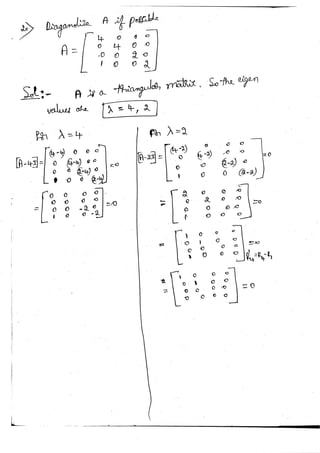 2c) Diagonalize A if possible
A = [ 4 0 0 0
0 4 0 0
0 0 2 0
1 0 0 2 ]
Sol:- A is a triangular matrix. So the eigen
values are λ = 4, 2
For λ=4
[A-4I] = [ (4-4) 0 0 0
0 (4-4) 0 0
0 0 (2-4) 0
1 0 0 (2-4) ] =0
= [ 0 0 0 0
0 0 0 0
0 0 -2 0
1 0 0 -2 ] =0
For λ=2
[A-2I] = [ (4-2) 0 0 0
0 (4-2) 0 0
0 0 (2-2) 0
1 0 0 (2-2) ] =0
= [ 2 0 0 0
0 2 0 0
0 0 0 0
1 0 0 0 ] =0
= [ 1 0 0 0
0 1 0 0
0 0 0 0
1 0 0 0 ] =0
R4=R4-R1
= [ 1 0 0 0
0 1 0 0
0 0 0 0
0 0 0 0 ] = 0